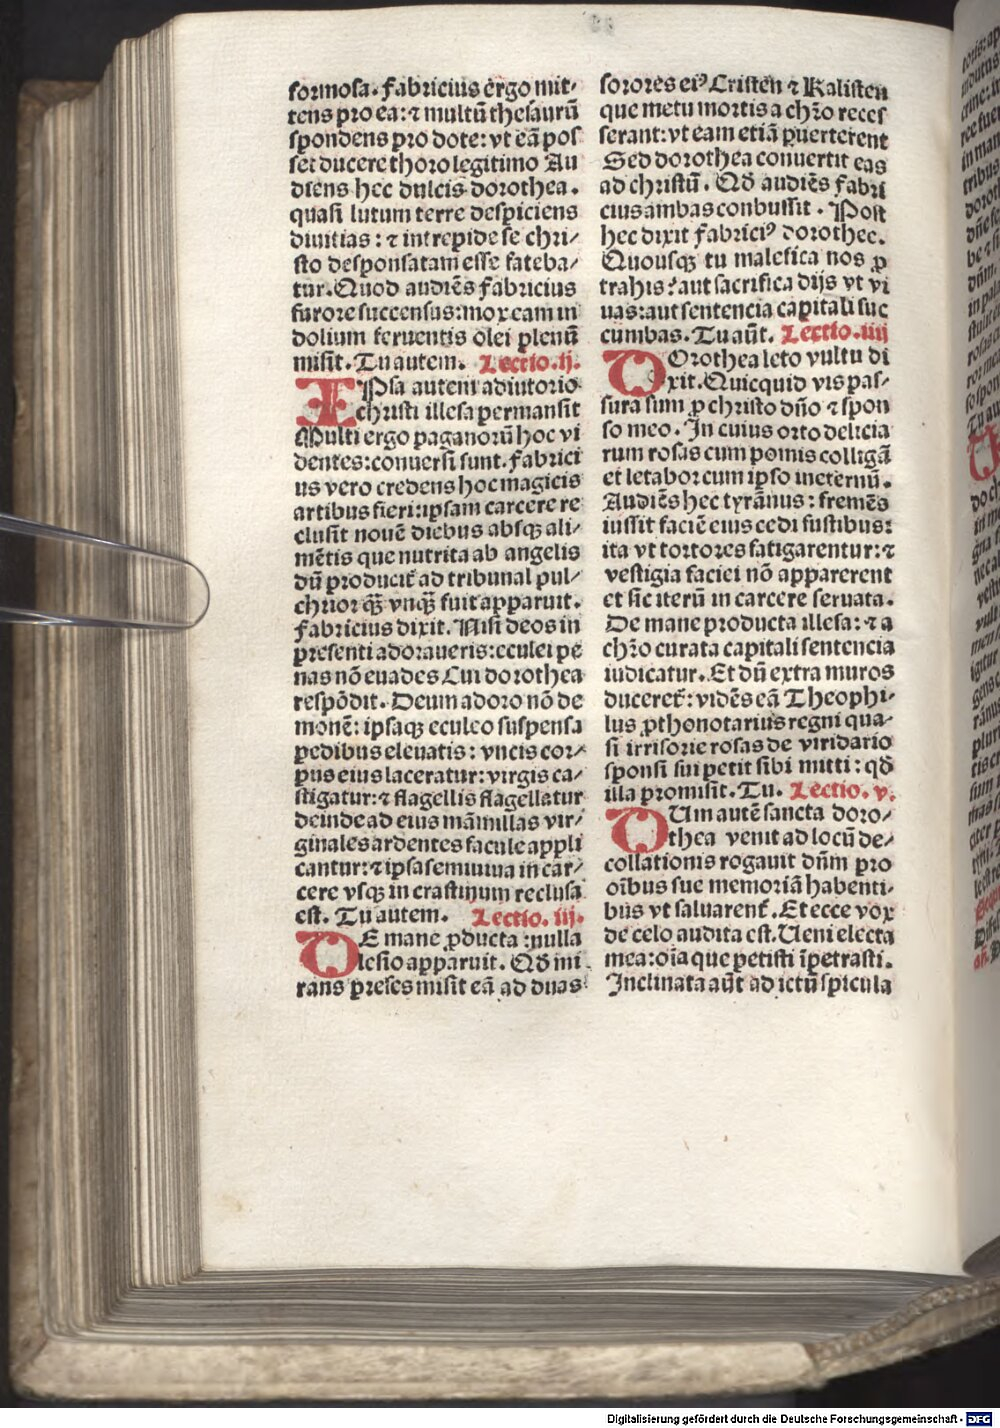 formosa. Fabricius ergo mit⸗
tens pro ea: ⁊ multū thesaurū
spondens pro dote: vt eā pos
set ducere thoro legitimo Au
diens hec dulcis dorothea.
quasi lutum terre despiciens
diuitias: ⁊ intrepide se chri⸗
sto desponsatam esse fateba⸗
tur. Quod audiēs fabricius
furore succensus: mox eam in
dolium feruentis olei plenū
misit. Tu autem. Lectio. ij.
IPsa autem adiutorio
christi illesa permansit
Multi ergo paganorū hoc vi
dentes: conuersi sunt. Fabrici
us vero credens hoc magicis
artibus fieri: ipsam carcere re
clusit nouē diebus absqꝫ ali⸗
mētis que nutrita ab angelis
dū producit᷑ ad tribunal pul⸗
chrior qꝫ̄ vnqꝫ̄ fuit apparuit.
Fabricius dixit. Nisi deos in
presenti adoraueris: eculei pe
nas nō euades Cui dorothea
respōdit. Deum adoro nō de
monē: ipsaqꝫ eculeo suspensa
pedibus eleuatis: vncis cor⸗
pus eius laceratur: virgis ca⸗
stigatur: ⁊ flagellis flagellatur
deinde ad eius māmillas vir⸗
ginales ardentes facule appli
cantur: ⁊ ipsa semiuiua in car⸗
cere vsqꝫ in crastinum reclusa
est. Tu autem. Lectio. iij.
DE mane ꝓducta: nulla
lesio apparuit. Qđ mi
rans preses misit eā ad duas
sorores eiꝰ Cristen ⁊ Kalisten
que metu mortis a chr̄o reces
serant: vt eam etiā ꝑuerterent
Sed dorothea conuertit eas
ad christū. Qđ audiēs fabri
cius ambas conbussit. Post
hec dixit fabriciꝰ dorothee.
Quousqꝫ tu malefica nos ꝓ
trahis? aut sacrifica dijs vt vi
uas: aut sentencia capitali suc
cumbas. Tu aūt. Lectio. iiij
DOrothea leto vultu di
xit. Quicquid vis pas⸗
sura sum ꝓ christo dn̄o ⁊ spon
so meo. In cuius orto delicia
rum rosas cum pomis colligā
et letabor cum ipso ineternū.
Audiēs hec tyrānus: fremēs
iussit faciē eius cedi fustibus:
ita vt tortores fatigarentur: ⁊
vestigia faciei nō apparerent
et sic iterū in carcere seruata.
De mane producta illesa: ⁊ a
chr̄o curata capitali sentencia
iudicatur. Et dū extra muros
duceret᷑: vidēs eā Theophi⸗
lus ꝓthonotarius regni qua⸗
si irrisorie rosas de viridario
sponsi sui petit sibi mitti: qđ
illa promisit. Tu. Lectio. v.
DUm autē sancta doro⸗
thea venit ad locū de⸗
collationis rogauit dn̄m pro
oībus sue memoriā habenti⸗
bus vt saluarent᷑. Et ecce vox
de celo audita est. Ueni electa
mea: oīa que petisti īpetrasti.
Inclinata aūt ad ictū spicula
Digitalisierung gefördert durch die Deutsche Forschungsgemeinschaft - DFG